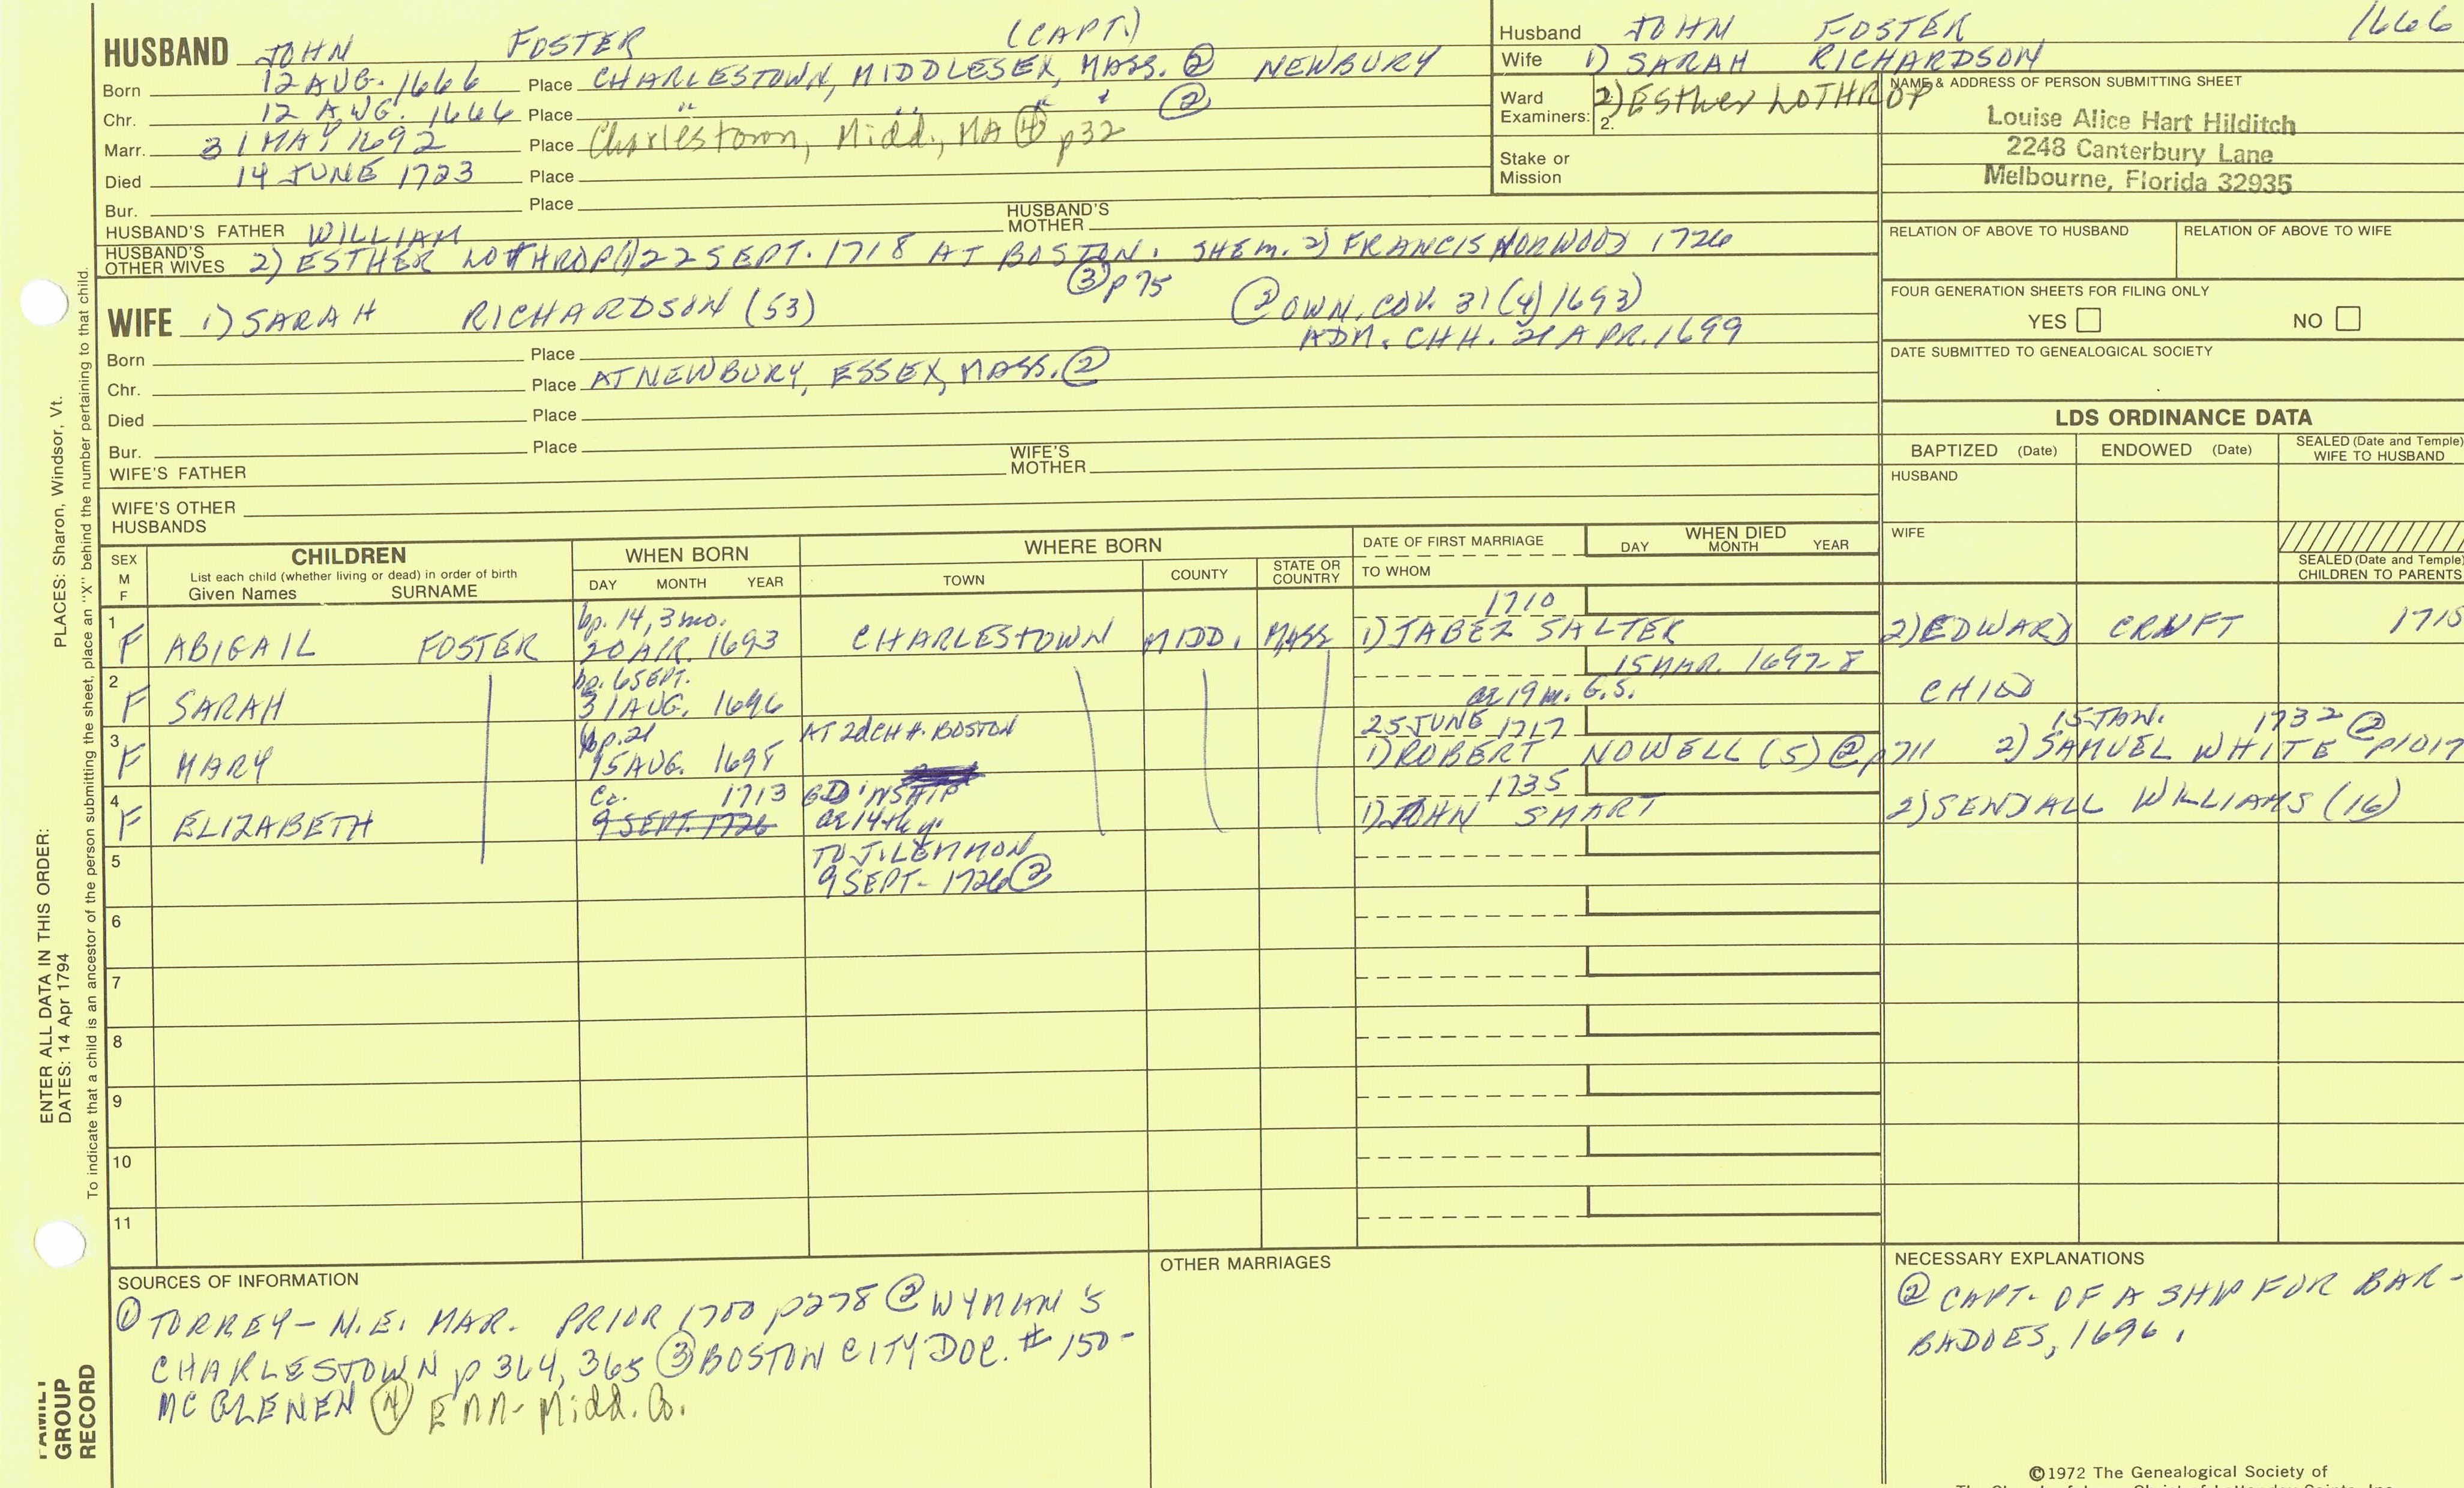 HUSBAND JOHN FOSTER (CAPT.)
Born 12 AUG. 1666 Place CHARLESTOWN, MIDDLESEX, MASS. ② NEWBURY
Chr. 12 AUG. 1666 Place " " " " ②
Marr. 31 MAY 1692 Place Charlestown, Midd., MA ④ p32
Died 14 JUNE 1723 Place
Bur. Place
HUSBAND'S FATHER WILLIAM HUSBAND'S MOTHER
HUSBAND'S OTHER WIVES 2) ESTHER LOTHROP (1) 22 SEPT. 1718 AT BOSTON. SHE M. 2) FRANCIS NORWOOD 1726
③ p75
WIFE 1) SARAH RICHARDSON (53) ② OWN. COV. 31 (4) 1693
ADM. CHH. 21 APR. 1699
Born Place
Chr. Place AT NEWBURY, ESSEX, MASS. ②
Died Place
Bur. Place
WIFE'S FATHER WIFE'S MOTHER
WIFE'S OTHER HUSBANDS
Husband JOHN FOSTER 1666
Wife 1) SARAH RICHARDSON
Ward Examiners: 2) Esther LOTHROP
2.
Stake or Mission
NAME & ADDRESS OF PERSON SUBMITTING SHEET
Louise Alice Hart Hilditch
2248 Canterbury Lane
Melbourne, Florida 32935
RELATION OF ABOVE TO HUSBAND RELATION OF ABOVE TO WIFE
FOUR GENERATION SHEETS FOR FILING ONLY
YES NO
DATE SUBMITTED TO GENEALOGICAL SOCIETY
LDS ORDINANCE DATA
BAPTIZED (Date) ENDOWED (Date) SEALED (Date and Temple) WIFE TO HUSBAND
HUSBAND
WIFE
SEALED (Date and Temple) CHILDREN TO PARENTS
SEX M F
CHILDREN
List each child (whether living or dead) in order of birth
Given Names SURNAME
WHEN BORN
DAY MONTH YEAR
WHERE BORN
TOWN COUNTY STATE OR COUNTRY
DATE OF FIRST MARRIAGE
TO WHOM
WHEN DIED
DAY MONTH YEAR
1 bp. 14, 3 mo. 1710
F ABIGAIL FOSTER 20 APR. 1693 CHARLESTOWN MIDD. MASS 1) JABEZ SALTER 2) EDWARD CRUFT 1715
2 bp. 6 SEPT. 15 MAR. 1697-8
F SARAH 31 AUG. 1696 ae 19 m. G.S. CHILD
3 bp. 21 AT 2d CHH. BOSTON 25 JUNE 1717 15 JAN. 1732 ②
F MARY 15 AUG. 1698 1) ROBERT NOWELL (5) ② p711 2) SAMUEL WHITE p1017
4 Ca. 1713 GD'NSHIP 1735
F ELIZABETH 9 SEPT. 1726 ae 14th y. 1) JOHN SMART 2) SENDALL WILLIAMS (16)
5 TO J. LEMMON
9 SEPT- 1726 ②
6
7
8
9
10
11
SOURCES OF INFORMATION
① TORREY- N.E. MAR. PRIOR 1700 p278 ② WYMAN'S
CHARLESTOWN p 364, 365 ③ BOSTON CITY DOC. # 150-
MCGLENEN ④ Midd. Co.
OTHER MARRIAGES
NECESSARY EXPLANATIONS
② CAPT. OF A SHIP FOR BAR-
BADOES, 1696.
©1972 The Genealogical Society of
PLACES: Sharon, Windsor, Vt.
ENTER ALL DATA IN THIS ORDER:
DATES: 14 Apr 1794
To indicate that a child is an ancestor of the person submitting the sheet, place an "X" behind the number pertaining to that child.
FAMILY GROUP RECORD